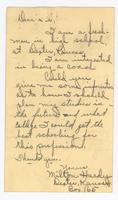 Dear sir,
I am a fresh-
men in high school,
at Dexter, Kansas.
I am interested
in being a coach.
Could you
give me some
as to how I should
plan my studies in
the future and what
college I could get the
best schooling for
this profession.
Thank you.
Yours
Milton Hardy
Dexter, Kansas
Box 165